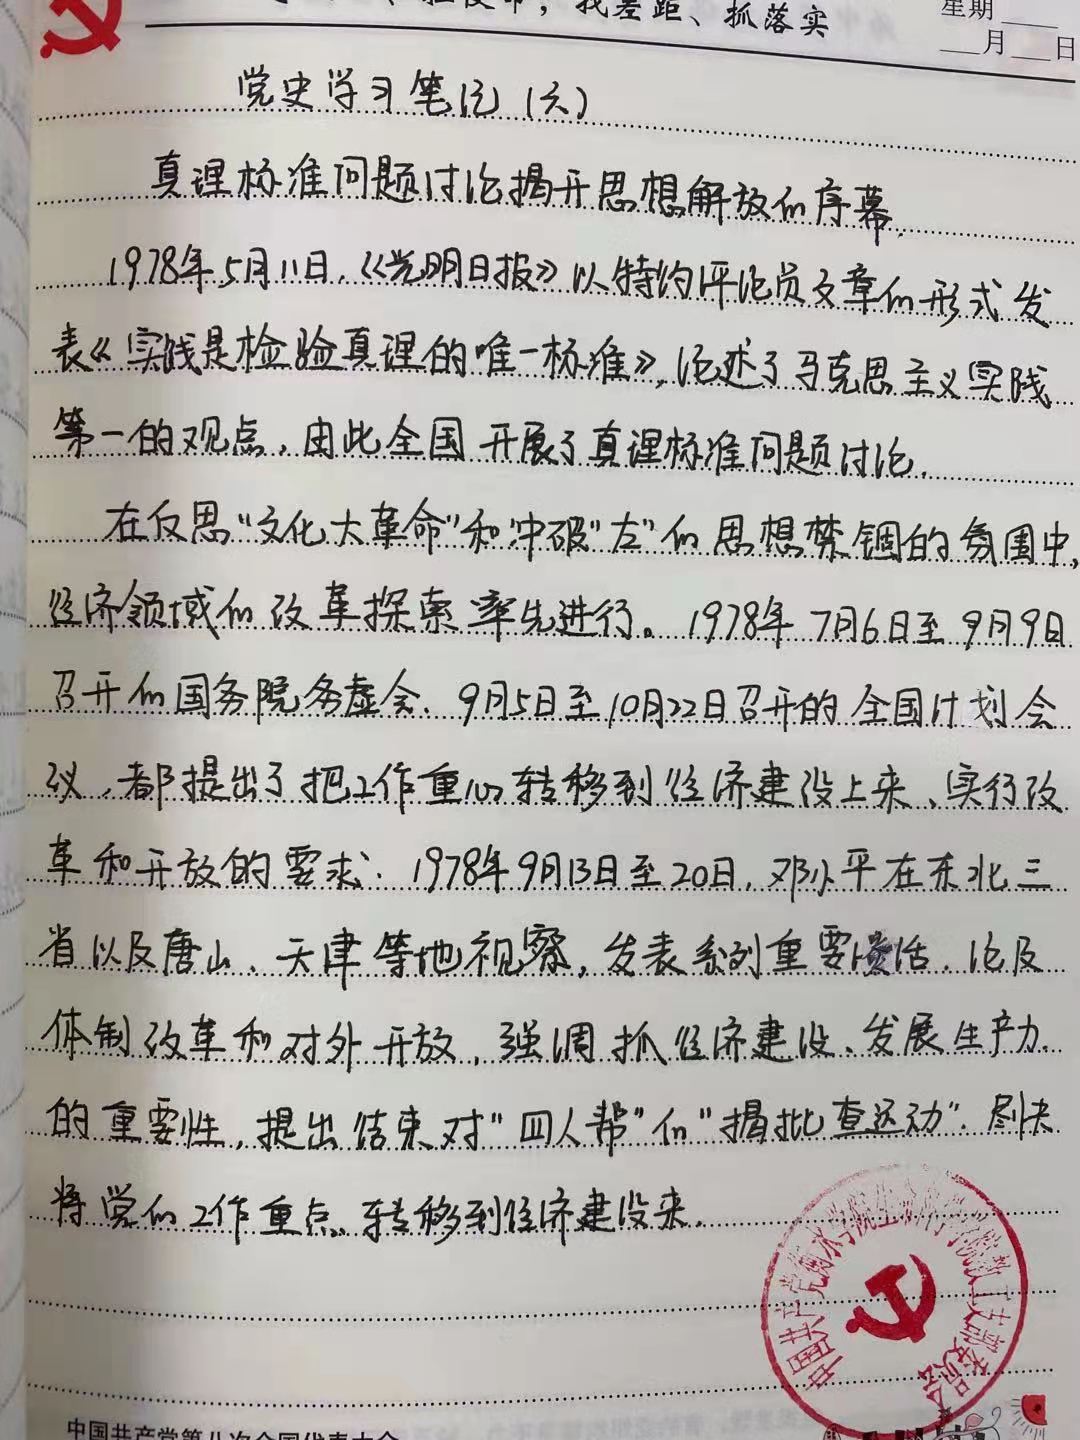 找差距、抓落实
星期
月 日
党史学习笔记(六)
真理标准问题讨论揭开思想解放的序幕.
1978年5月11日,《光明日报》以特约评论员文章的形式发
表《实践是检验真理的唯一标准》,论述了马克思主义实践
第一的观点,由此全国开展了真理标准问题讨论.
在反思“文化大革命”和冲破“左”的思想禁锢的氛围中,
经济领域的改革探索率先进行。1978年7月6日至9月9日
召开的国务院务虚会、9月5日至10月22日召开的全国计划会
议,都提出了把工作重心转移到经济建设上来、实行改
革和开放的要求.1978年9月13日至20日,邓小平在东北三
省以及唐山、天津等地视察,发表系列重要谈话.论及
体制改革和对外开放,强调抓经济建设、发展生产力
的重要性,提出结束对“四人帮”的“揭批查运动”.尽快
将党的工作重点转移到经济建设来.
中国共产党衡水学院
教工支部委员会
中国共产党第八次全国代表大会